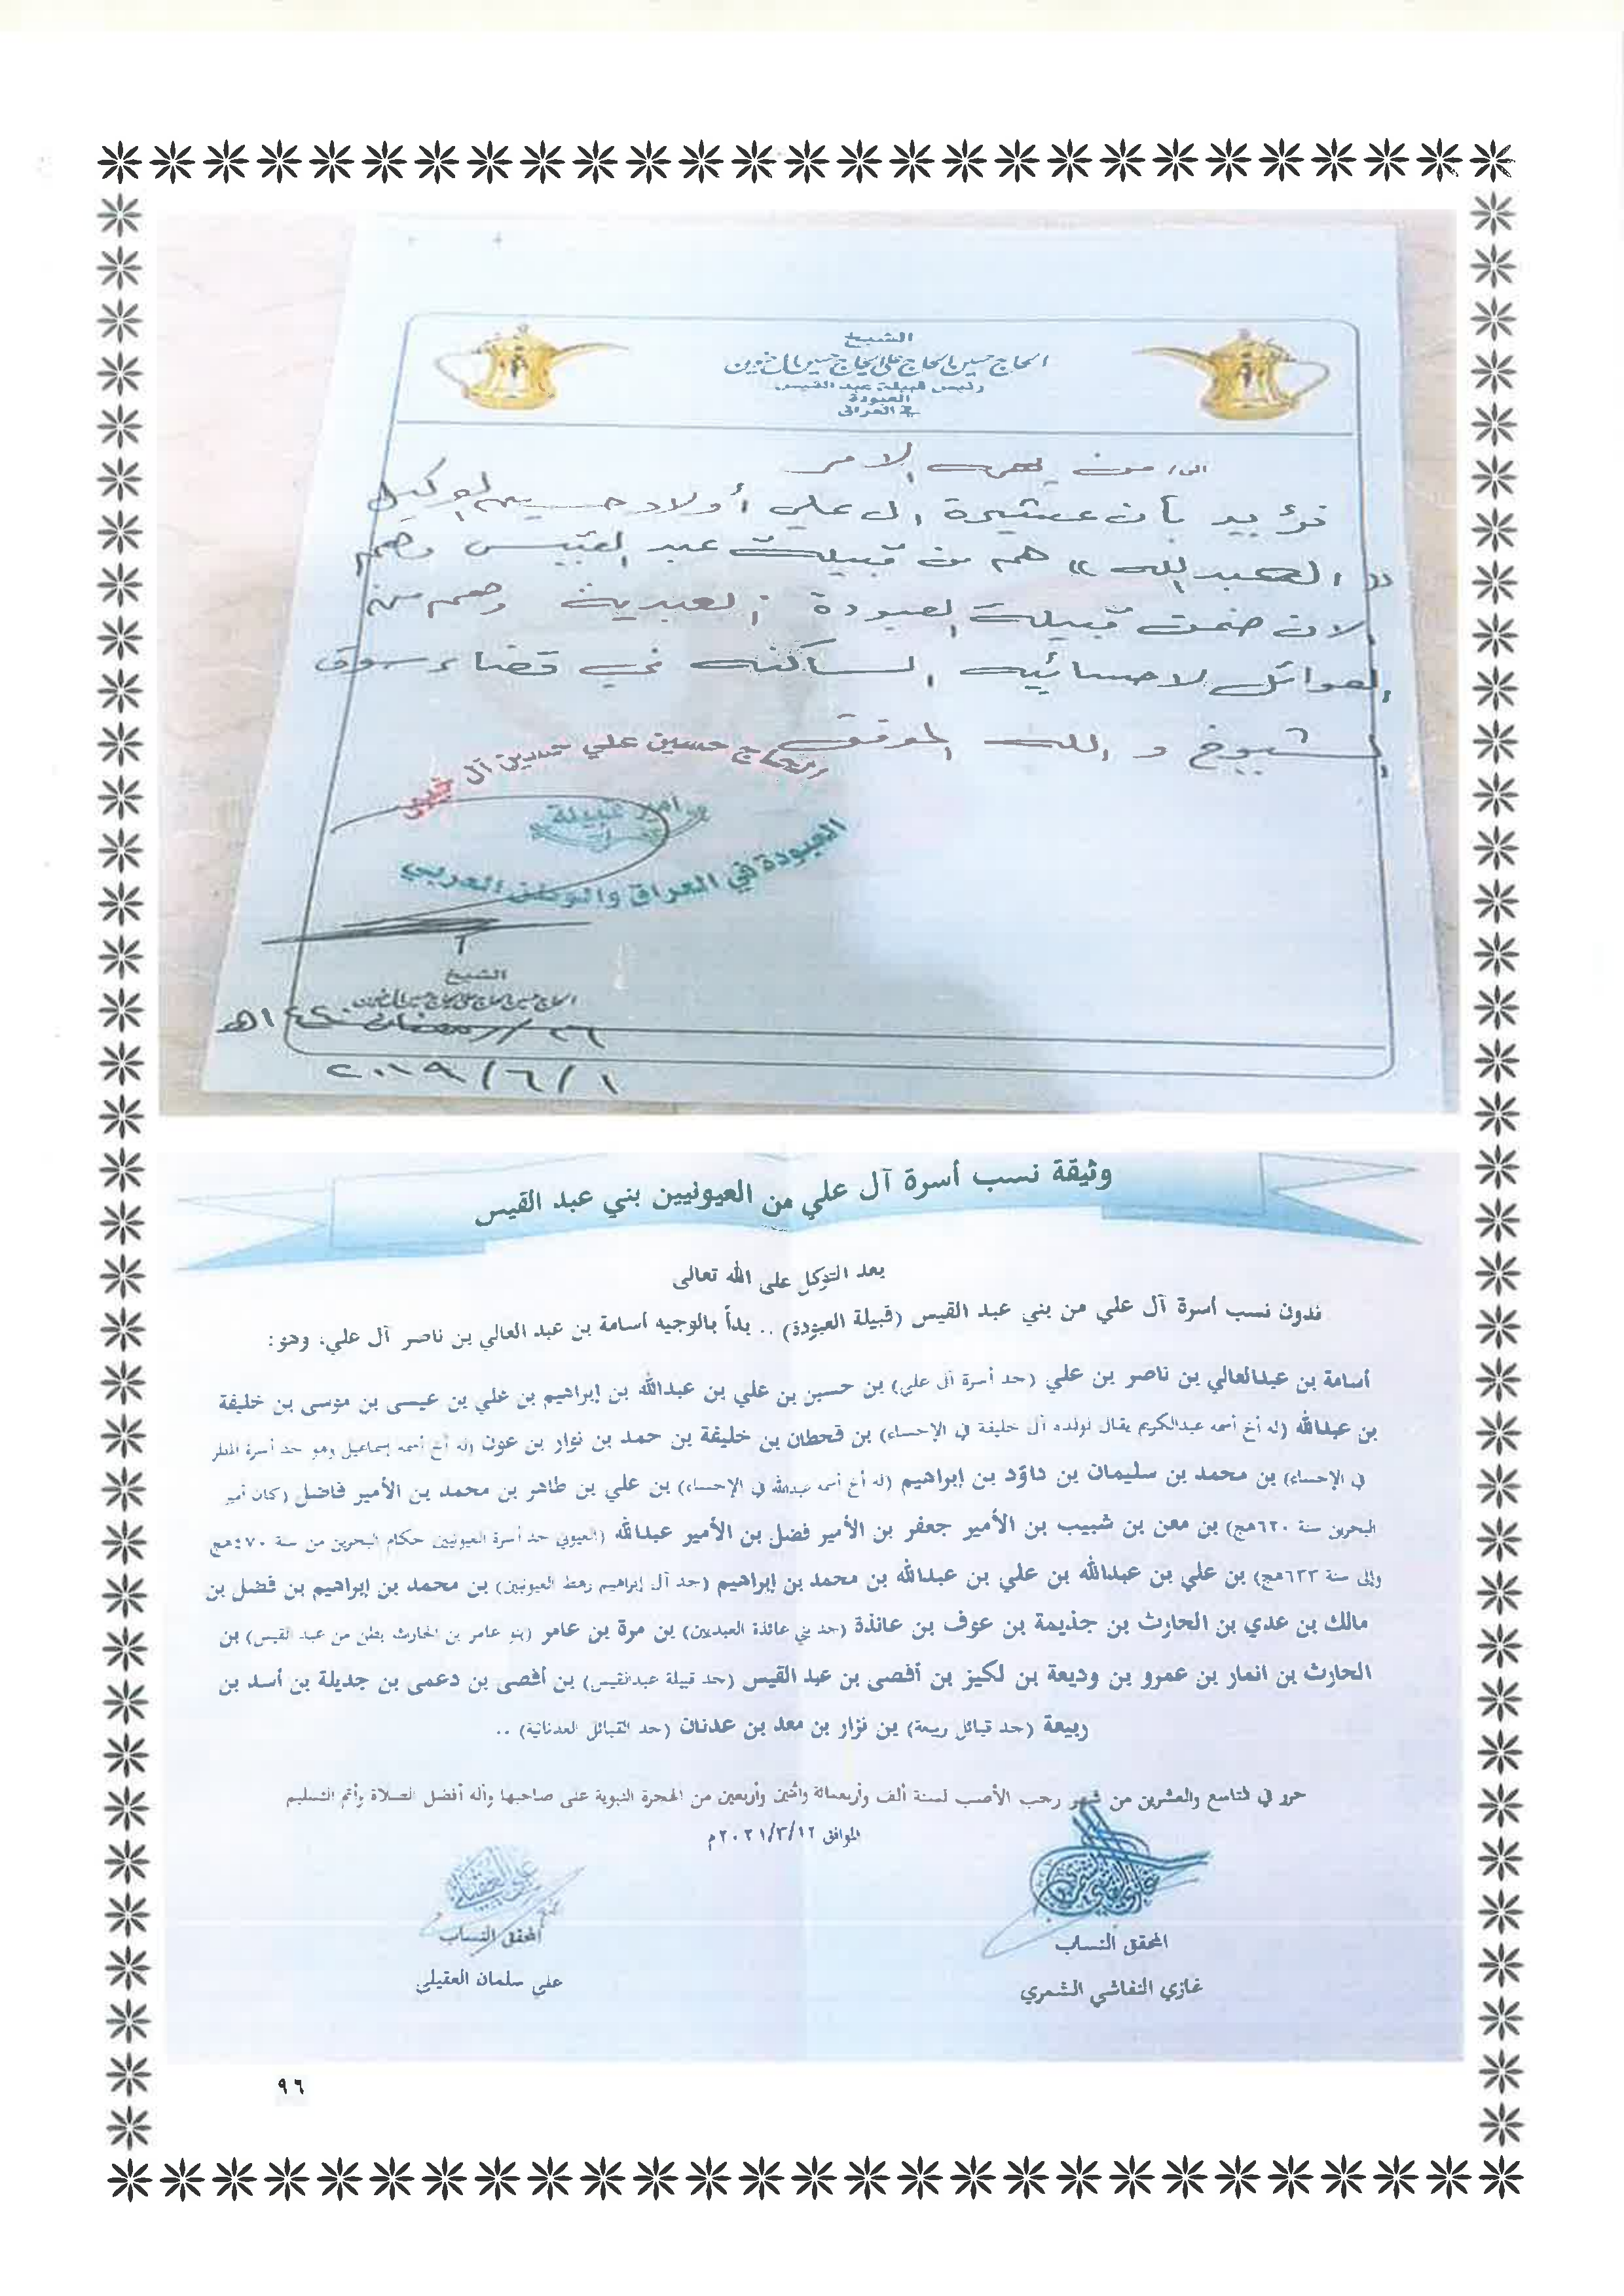 الشيخ
الحاج حسين الحاج علي الحاج حسين آل خيون
رئيس قبيلة عبد القيس
العبودة
في العراق
الى / من يهمه الامر
نؤيد بأن عشيرة ال علي أولاد حسين الوكيل
((العبدالله)) هم من قبيلة عبد القيس وهم
الان ضمن قبيلة العبودة العبدية وهم من
العوائل الاحسائيه الساكنه في قضاء سوق
الشيوخ و الله الموفق
الحاج حسين علي حسين آل خيون
امير قبيلة
العبودة في العراق والوطن العربي
الشيخ
الحاج حسين الحاج علي الحاج حسين آل خيون
٢٦ / رمضان ١٤٤٠هـ
٢٠١٩/٦/١
وثيقة نسب أسرة آل علي من العيونيين بني عبد القيس
بعد التوكل على الله تعالى
ندون نسب أسرة آل علي من بني عبد القيس (قبيلة العبودة) .. بدأ بالوجيه أسامة بن عبد العالي بن ناصر آل علي، وهو:
أسامة بن عبدالعالي بن ناصر بن علي (جد أسرة آل علي) بن حسين بن علي بن عبدالله بن إبراهيم بن علي بن عيسى بن موسى بن خليفة
بن عبدالله (له أخ أسمه عبدالكريم يقال لولده آل خليفة في الإحساء) بن قحطان بن خليفة بن حمد بن نوار بن عون (له أخ أسمه إسماعيل وهو جد أسرة المطر
في الإحساء) بن محمد بن سليمان بن داؤد بن إبراهيم (له أخ أسمه عبدالله في الإحساء) بن علي بن طاهر بن محمد بن الأمير فاضل (كان أمير
البحرين سنة ٦٢٠هج) بن معن بن شبيب بن الأمير جعفر بن الأمير فضل بن الأمير عبدالله (العيوني جد أسرة العيونيين حكام البحرين من سنة ٤٧٠هج
وإلى سنة ٦٣٣هج) بن علي بن عبدالله بن علي بن عبدالله بن محمد بن إبراهيم (جد آل إبراهيم رهط العيونيين) بن محمد بن إبراهيم بن فضل بن
مالك بن عدي بن الحارث بن جذيمة بن عوف بن عائذة (جد بني عائذة العبديين) بن مرة بن عامر (بنو عامر بن الحارث بطن من عبد القيس) بن
الحارث بن انمار بن عمرو بن وديعة بن لكيز بن أفصى بن عبد القيس (جد قبيلة عبدالقيس) بن أفصى بن دعمى بن جديلة بن أسد بن
ربيعة (جد قبائل ربيعة) بن نزار بن معد بن عدنان (جد القبائل العدنانية) ..
حرر في التاسع والعشرين من شهر رجب الأصب لسنة ألف وأربعمائة واثنين وأربعين من الهجرة النبوية على صاحبها وأله أفضل الصلاة وأتم التسليم
الموافق ٢٠٢١/٣/١٢م
المحقق النساب
غازي النفاشي الشمري
المحقق النساب
علي سلمان العقيلي
٩٦